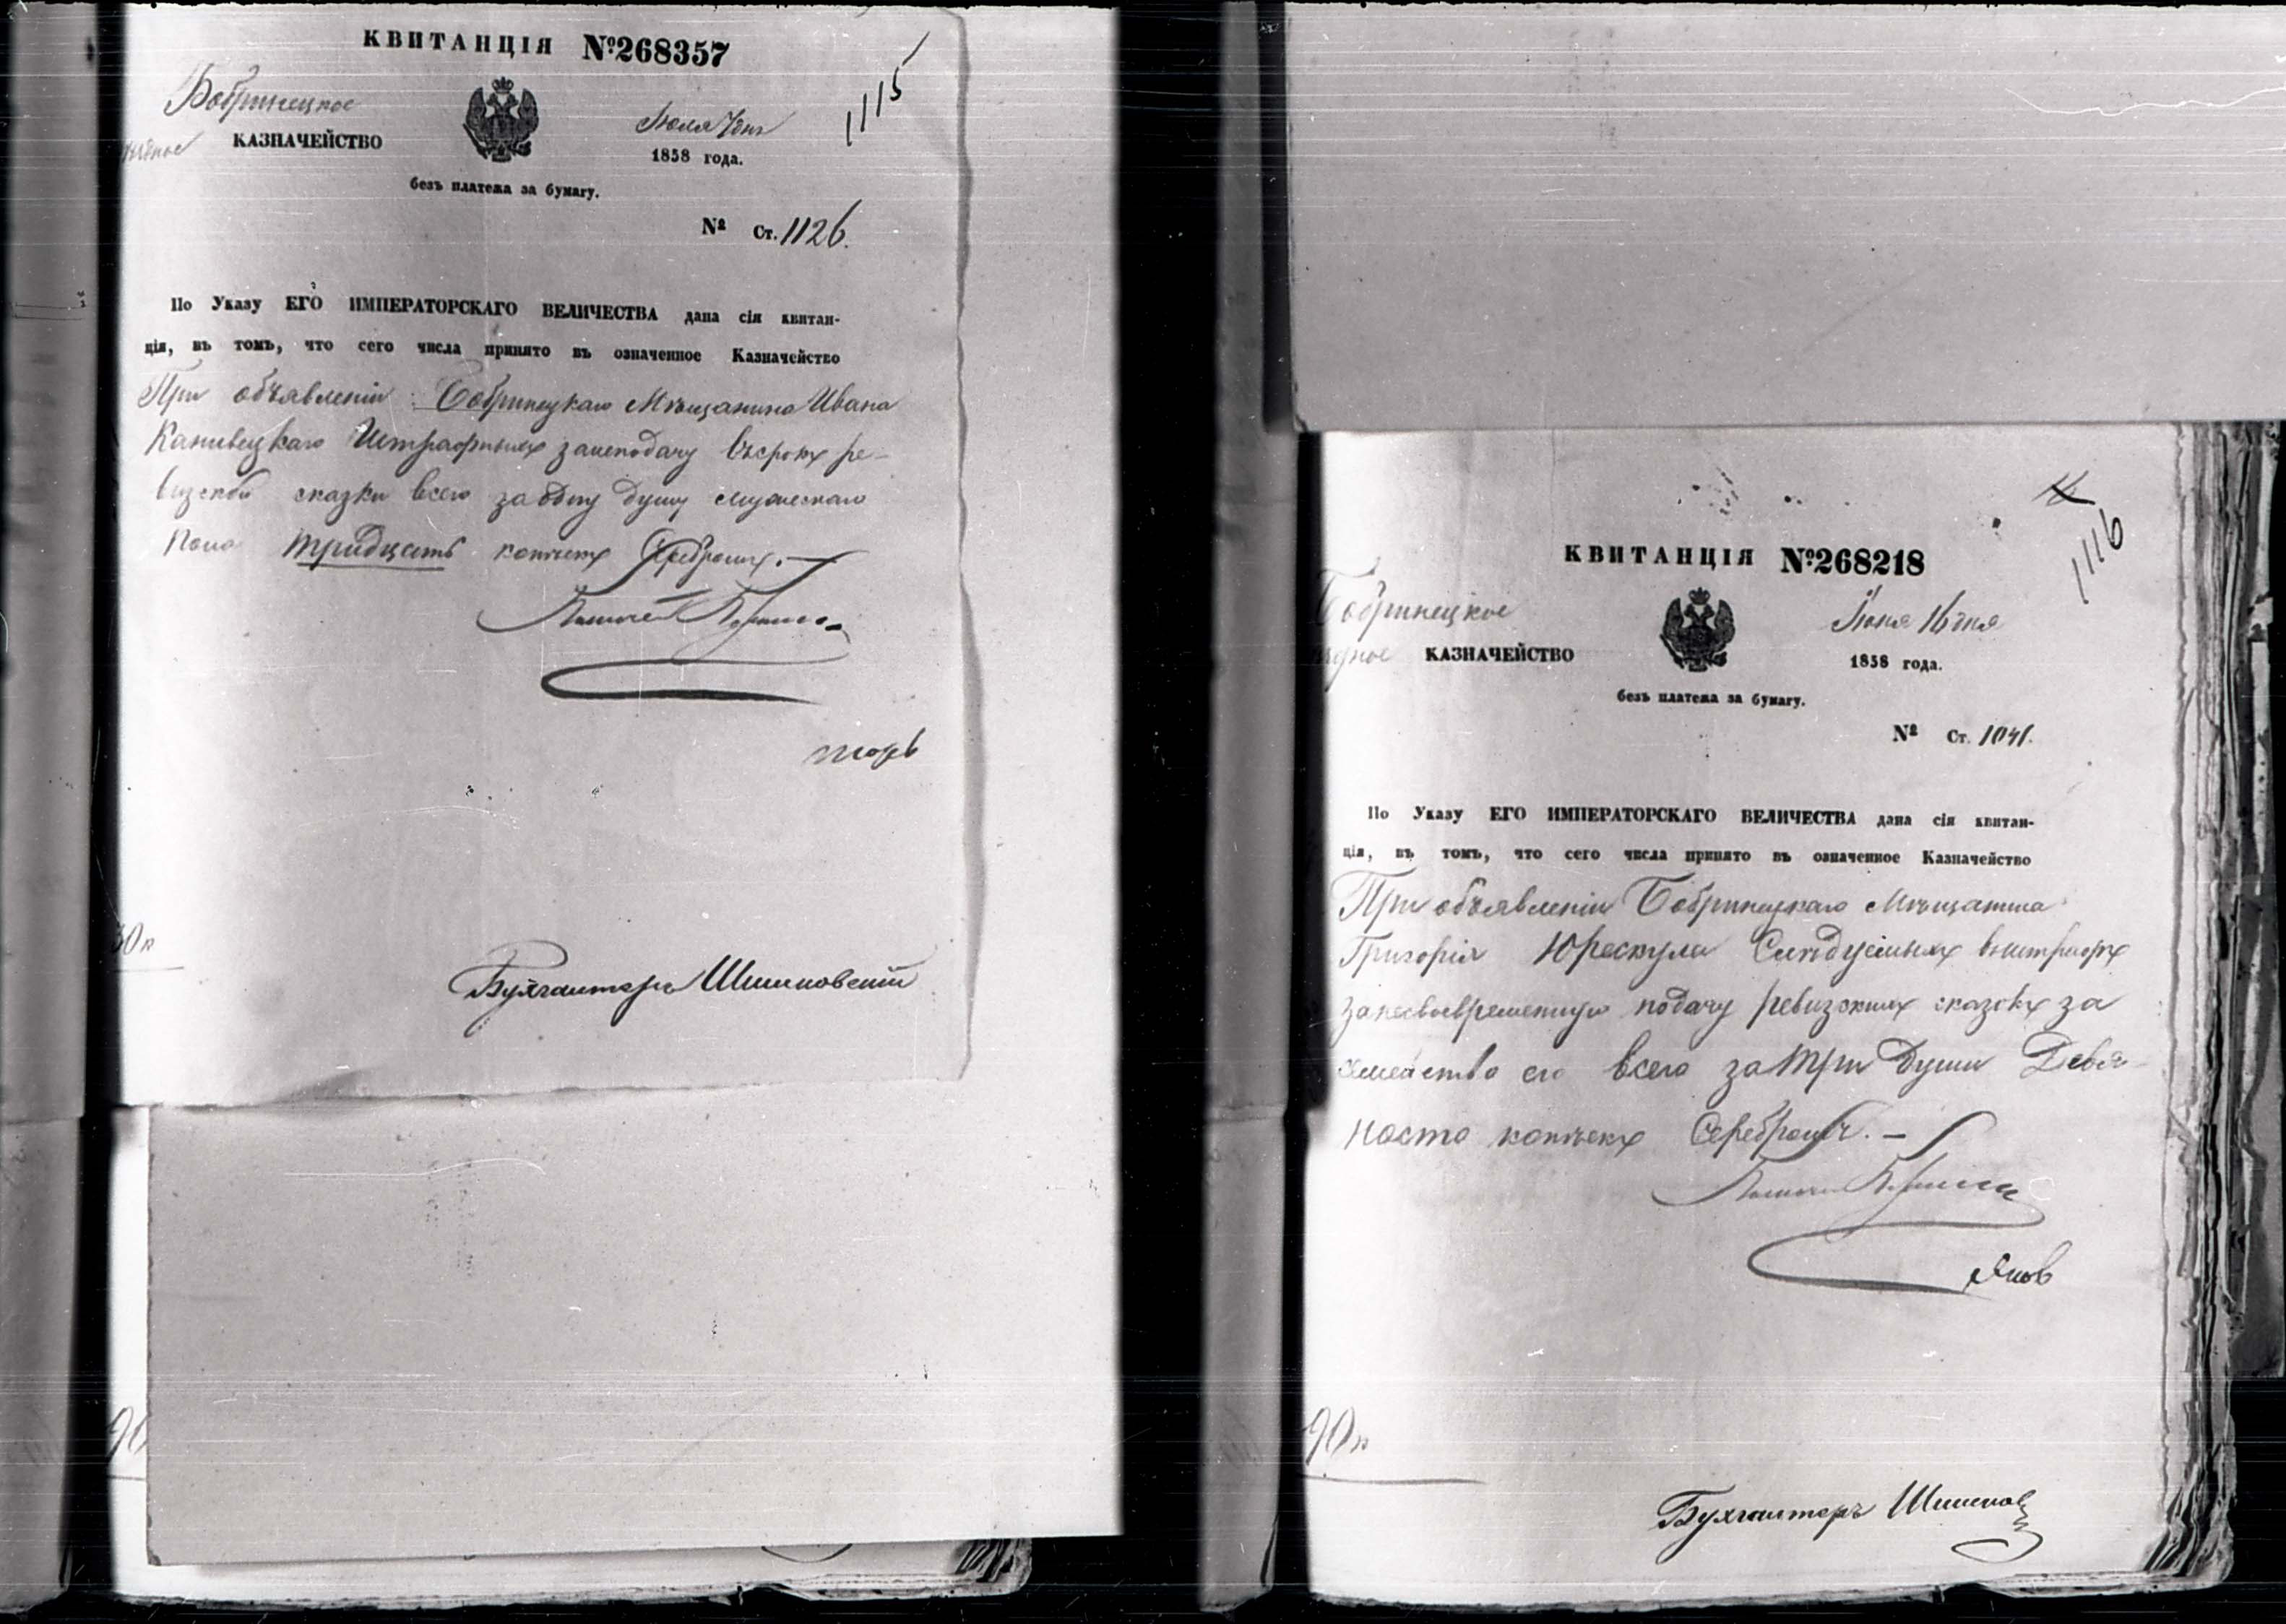 КВИТАНЦІЯ №268357
1115
Бобринецкое
КАЗНАЧЕЙСТВО
Іюля 7 дня
1858 года.
безъ платежа за бумагу.
№ Ст. 1126.
По Указу ЕГО ИМПЕРАТОРСКАГО ВЕЛИЧЕСТВА дана сія квитан-
ція, въ томъ, что сего числа принято въ означенное Казначейство
При объявленіи Бобринецкаго Мѣщанина Ивана
Каневецкаго Штрафныхъ за неподачу въ срокъ ре-
визской сказки всего за одну душу мужескаго
пола тридцать копѣекъ Серебромъ. —
30 к
Бухгалтеръ Шишковскій
90
КВИТАНЦІЯ №268218
1116
Бобринецкое
КАЗНАЧЕЙСТВО
Іюня 16 дня
1858 года.
безъ платежа за бумагу.
№ Ст. 1041.
По Указу ЕГО ИМПЕРАТОРСКАГО ВЕЛИЧЕСТВА дана сія квитан-
ція, въ томъ, что сего числа принято въ означенное Казначейство
При объявленіи Бобринецкаго Мѣщанина
Григорія Юрескула Слѣдуемыхъ въ штрафъ
за несвоевременную подачу ревизскихъ сказокъ за
семейство его всего за три души Девя-
носто копѣекъ Серебромъ. —
90 к
Бухгалтеръ Шишков